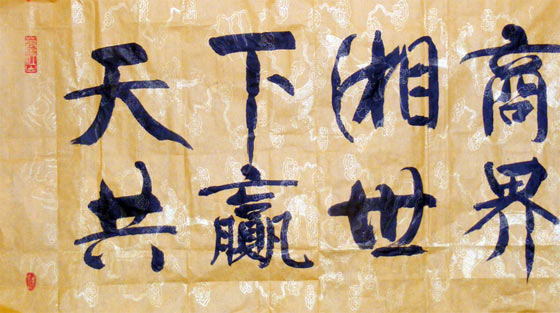 天下湘商
共赢世界